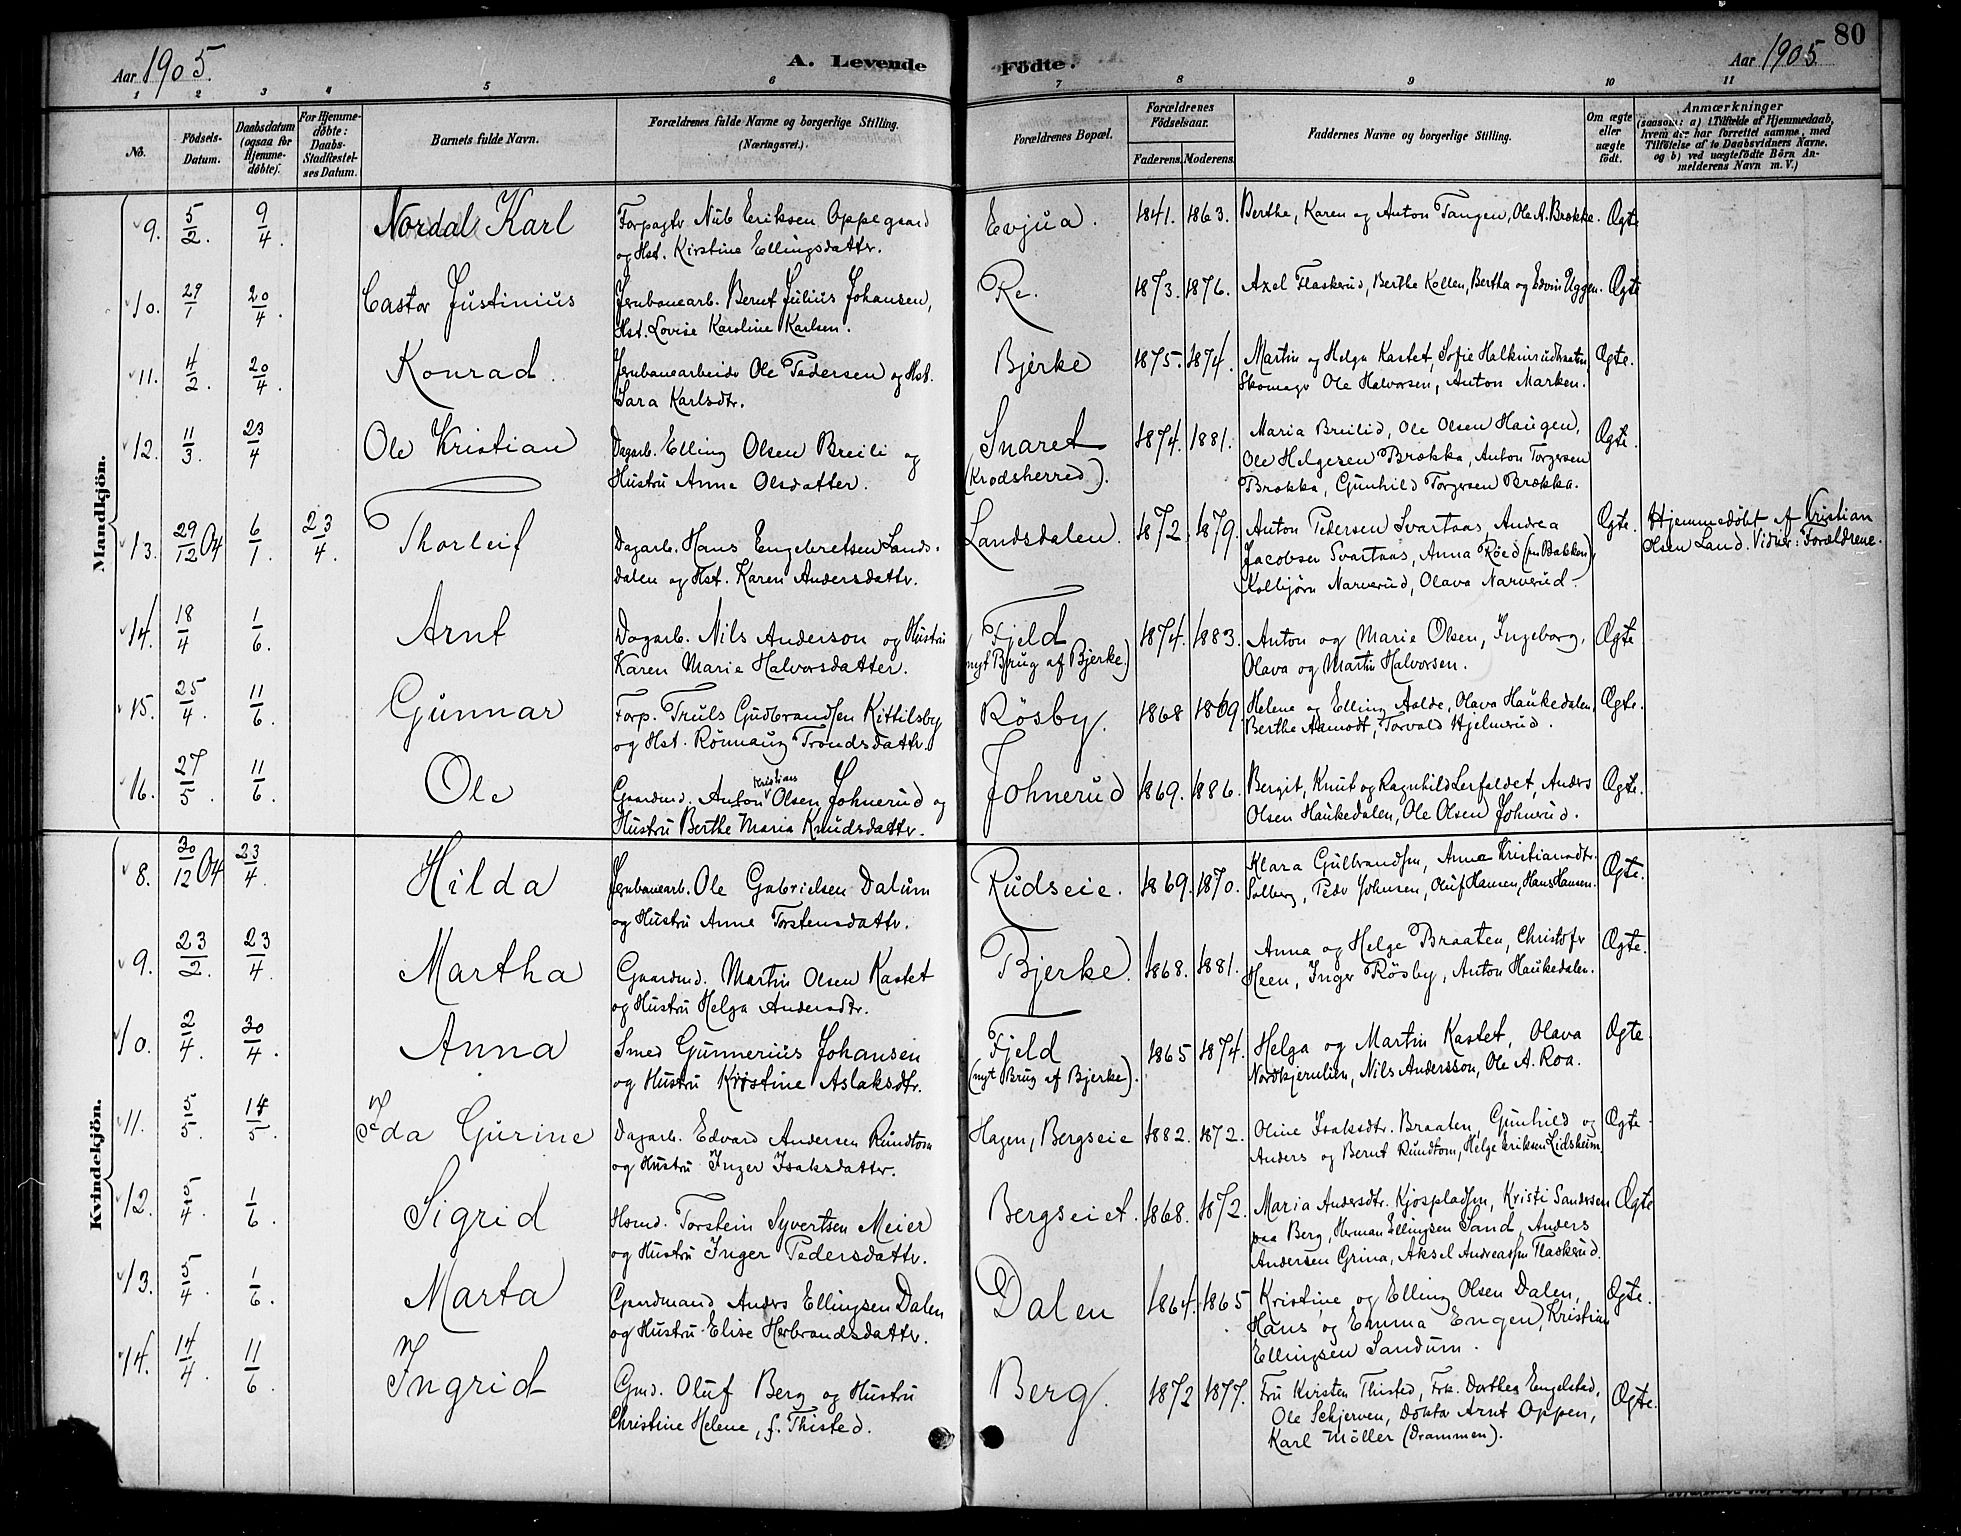 80
Aar 1905. A. Levende Födte. Aar 1905.
1 2 3 4 5 6 7 8 9 10 11
No. Födsels-Datum. Daabsdatum (ogsaa for Hjemme-döbte). For Hjemme-döbte: Daabs-Stadfæstel-ses Datum. Barnets fulde Navn. Forældrenes fulde Navne og borgerlige Stilling. (Næringsvei.) Forældrenes Bopæl. Forældrenes Födselsaar. Faderens. Moderens. Faddernes Navne og borgerlige Stilling. Om ægte eller uægte födt. Anmærkninger (saasom: a) i Tilfælde af Hjemmedaab, hvem der har forrettet samme, med Tilföielse af to Daabsvidners Navne, og b) ved uægtefödte Börn An-melderens Navn m. V.)
Mandkjön.
9. 5/2. 9/4. Nordal Karl Forpagtr Nub Eriksen Oppegaard Evjua. 1841. 1863. Berthe, Karen og Anton Tangen, Ole A. Brække. Ægte
og Hst. Kirstine Ellingsdattr.
10. 29/1 20/4. Castor Justinius Jernbanearb. Bernt Julius Johansen, Re. 1873. 1876. Axel Flaskerud, Berthe Kollen, Bertha og Edvin Uggen. Ægte
Hst. Lovise Karoline Karlsen.
11. 4/2. 20/4. Konrad. Jernbanearbeider Ole Pedersen og Hst. Bjerke 1875. 1874. Martin og Helga Kastet, Sofie Halkinrudhaaten Ægte.
Sara Karlsdtr. Skomagr Ole Halvorsen, Anton Marken.
12. 11/3. 23/4 Ole Kristian Dagarb. Elling Olsen Breili og Snaret 1874. 1881. Maria Breilid, Ole Olsen Haugen, Ægte.
Hustru Anne Olsdatter. (Krodsherred). Ole Helgesen Brækka, Anton Torgersen
Brækka, Gunhild Torgersen Brækka.
13. 29/12 04 6/1. 23/4. Thorleif Dagarb. Hans Engebretsen Lands- Landsdalen. 1872 1879. Anton Pedersen Svartaas, Andrea Ægte. Hjemmedöbt af Kristian
dalen og Hst. Karen Andersdattr. Jacobsen Svartaas, Anna Röed (fra Bakken), Olsen Land. Vidner: Forældrene.
Kolbjörn Narverud, Olava Narverud.
14. 18/4 1/6. Arnt Dagarb. Nils Anderson og Hustru Fjeld 1874. 1883. Anton og Marie Olsen, Ingeborg, Ægte
Karen Marie Halvorsdatter. (nyt Brug af Bjerke.) Olava og Martin Halvorsen.
15. 25/4. 11/6. Gunnar Forp. Truls Gudbrandsen Kittilsby Rösby. 1868 1869. Helene og Elling Aalde, Olava Haukedalen, Ægte.
og Hst. Rönnaug Trondsdattr. Berthe Aamodt, Torvald Hjelmerud.
16. 27/5. 11/6. Ole Gaardmd. Anton Kristians Olsen Johnerud og Johnerud 1869. 1886. Bergit, Knut og Ragnhild Lerfaldet, Anders Ægte.
Hustru Berthe Maria Knudsdattr. Olsen Haukedalen, Ole Olsen Johnerud.
Kvindekjön.
8. 20/12 04 23/4. Hilda Jernbanearb. Ole Gabrielsen Dalum Rudseie. 1869. 1870. Klara Gulbrandsen, Anne Kristiansdtr. Ægte.
og Hustru Anne Torstensdattr. Solberg, Peder Johnsen, Oluf Hansen, Hans Hansen.
9. 23/2. 23/4. Martha Gaardmd. Martin Olsen Kastet Bjerke. 1868. 1881. Anna og Helge Braaten, Christofer Ægte.
og Hustru Helga Andersdtr. Heen, Inger Rösby, Anton Haukedalen.
10. 2/4. 30/4. Anna Smed Gunnerius Johansen Fjeld 1865 1874. Helga og Martin Kastet, Olava Ægte
og Hustru Kristine Aslaksdtr. (nyt Brug af Bjerke). Nordkjernlien, Nils Andersson, Ole A. Roa.
11. 5/5. 14/5. Ida Gurine Dagarb. Edvard Andersen Rundtom Hagen, Bergseie 1882. 1872. Oline Isaksdtr. Braaten, Gunhild og Ægte.
og Hustru Inger Isaksdatter. Anders og Bernt Rundtom, Helge Eriksen Lidsheim.
12. 5/4. 1/6. Sigrid Hsmd. Torstein Syvertsen Meier Bergseiet. 1868. 1872. Maria Andersdtr. Kjospladsen, Kristi Sandersen Ægte
og Hustru Inger Pedersdattr. paa Berg, Herman Ellingsen Sand, Anders
Andersen Grina, Aksel Andreassen Flaskerud.
13. 5/4. 1/6. Marta Gaardmand Anders Ellingsen Dalen Dalen 1864. 1865 Kristine og Elling Olsen Dalen, Ægte.
og Hustru Elise Herbrandsdattr. Hans og Emma Engen, Kristian
Ellingsen Sandum.
14. 14/4. 11/6. Ingrid Gmd. Oluf Berg og Hustru Berg. 1872 1877. Fru Kirsten Thisted, Frk. Dorthea Engelstad, Ægte.
Christine Helene, f. Thisted. Ole Schjerven, Doktr Arnt Oppen,
Karl Möller (Drammen).